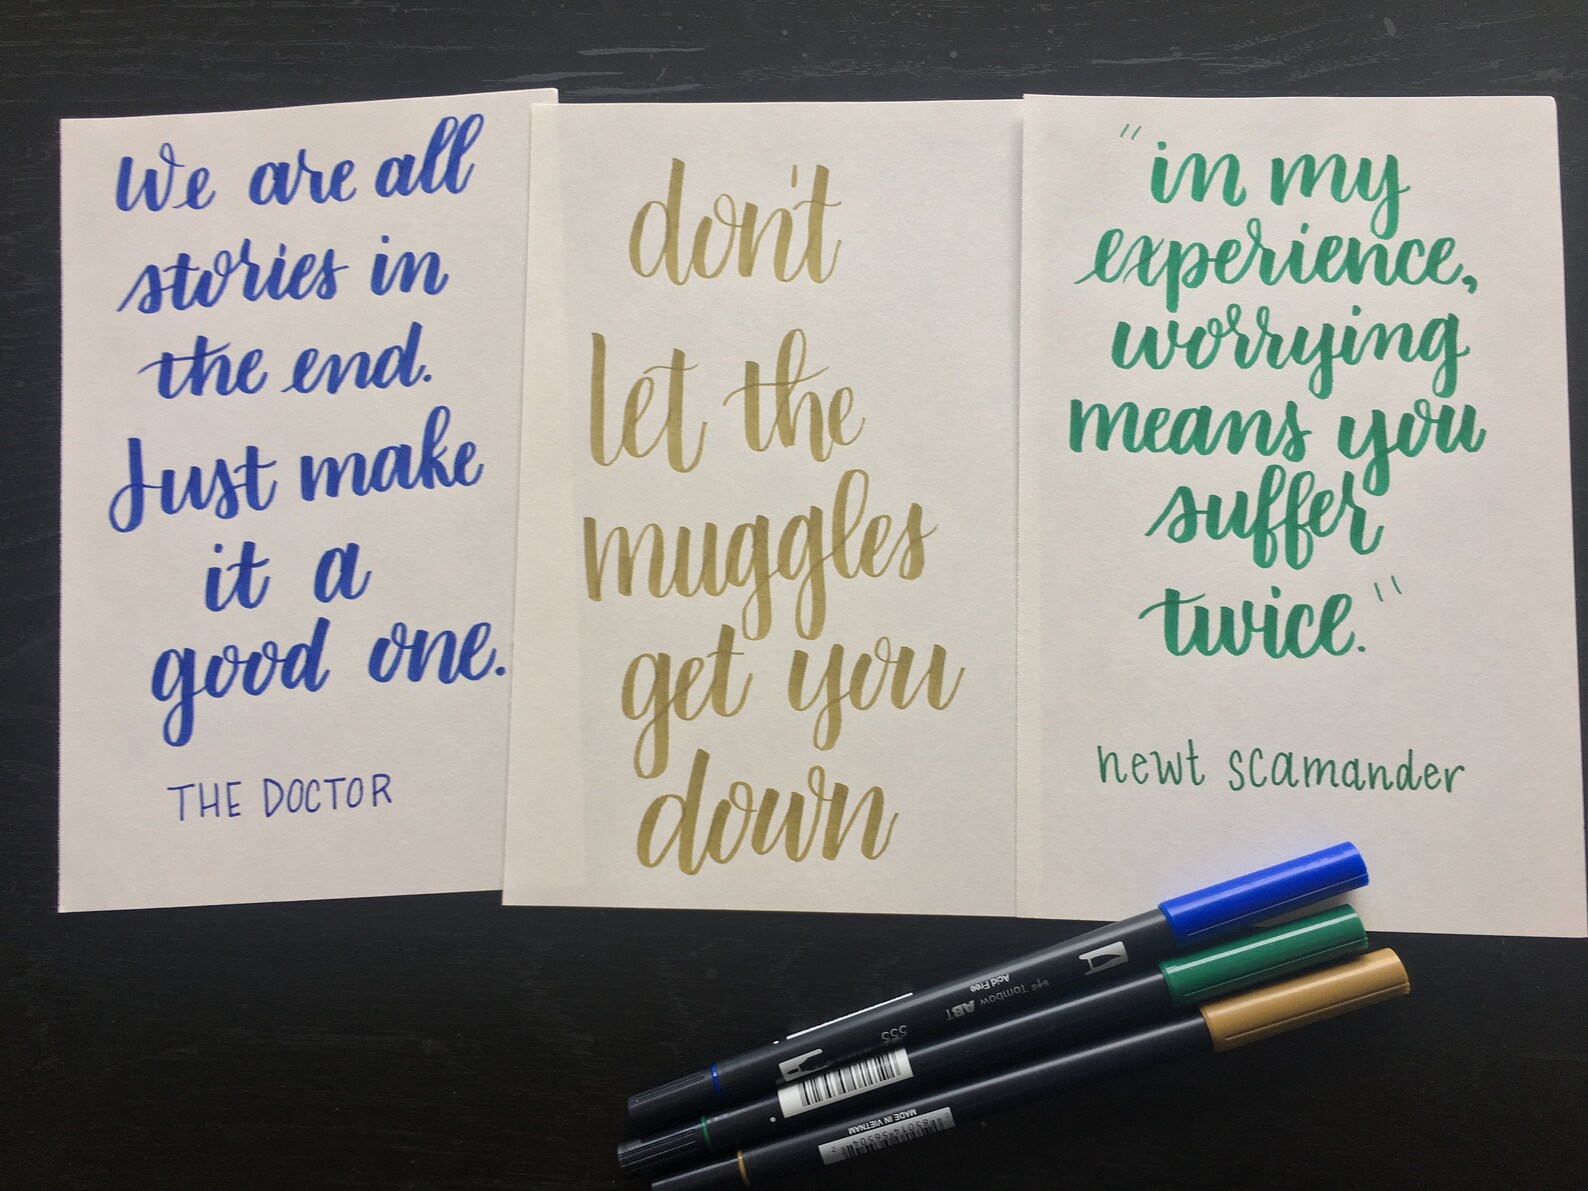 We are all
stories in
the end.
Just make
it a
good one.
THE DOCTOR
don't
let the
muggles
get you
down
"in my
experience,
worrying
means you
suffer
twice."
newt scamander
Tombow ABT
Acid Free
555
MADE IN VIETNAM